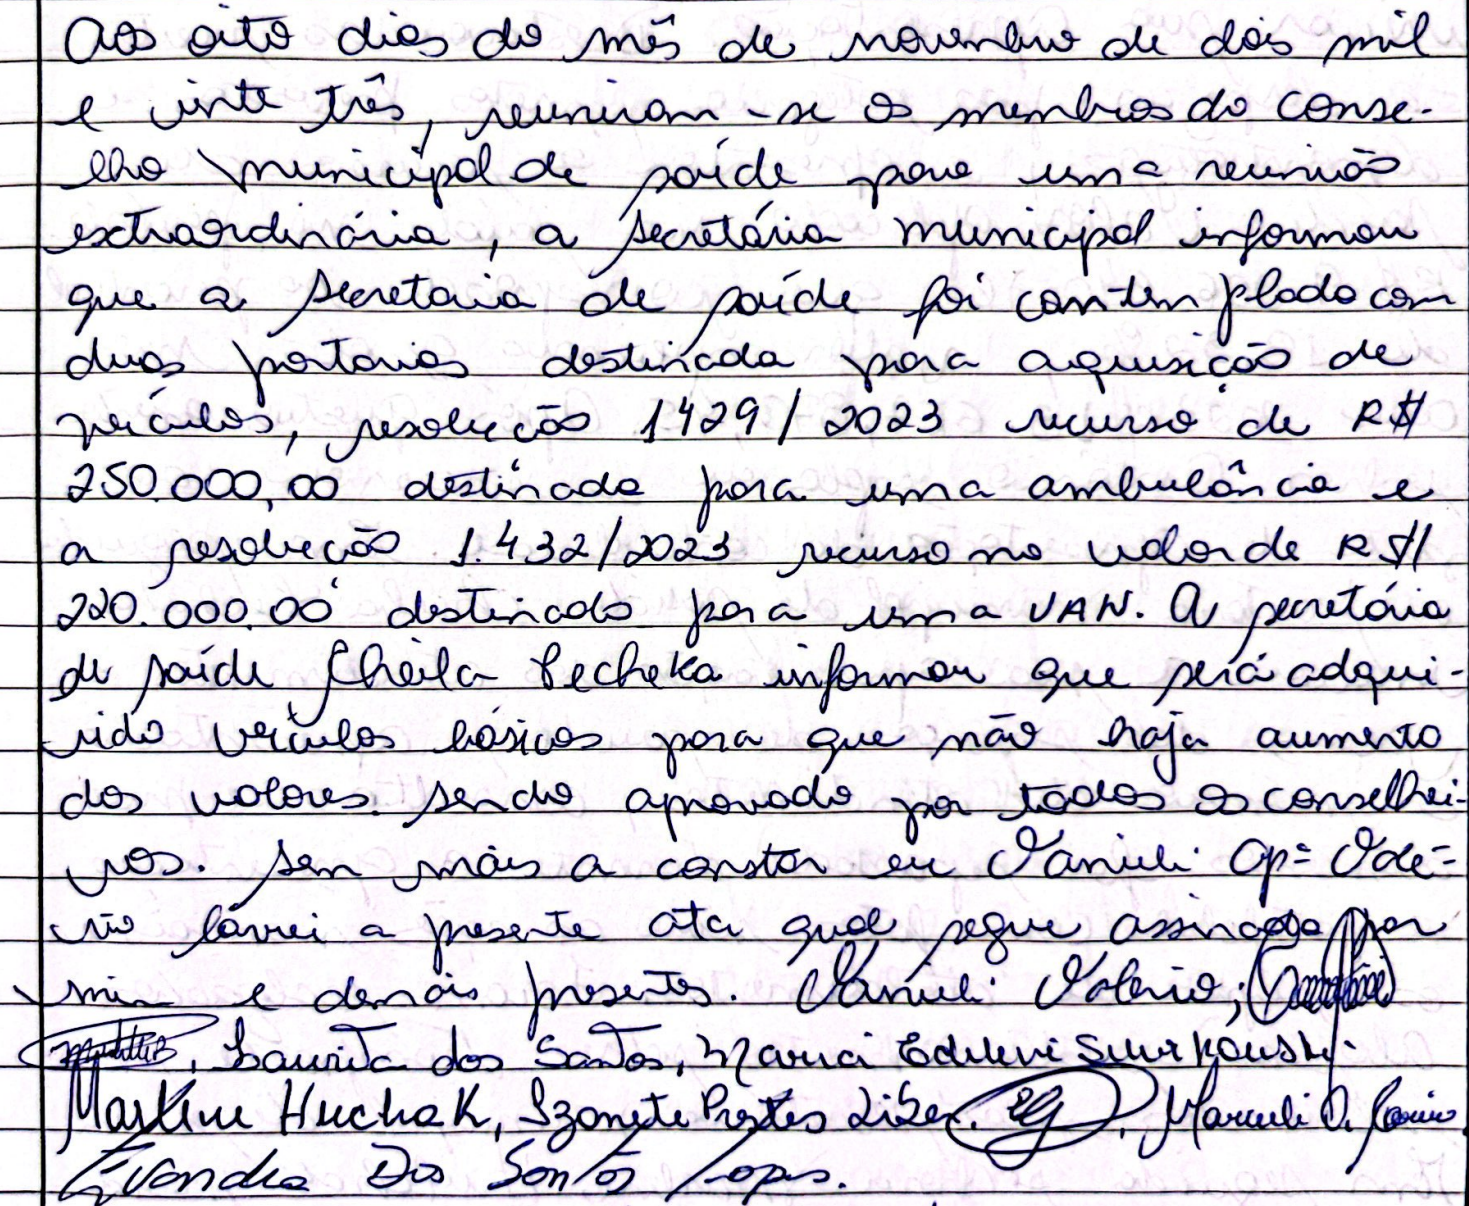 Aos oito dias do mês de novembro de dois mil
e vinte três, reuniram-se os membros do conse-
lho municipal de saúde para uma reunião
extraordinária, a secretária municipal informou
que a secretaria de saúde foi contemplado com
duas portarias destinada para aquisição de
veículos, resolução 1429/2023 recurso de R$
250.000,00 destinado para uma ambulância e
a resolução 1.432/2023 recurso no valor de R$
220.000.00 destinado para uma VAN. A secretária
de saúde Sheila Pecheka informou que será adqui-
rido veículos básicos para que não haja aumento
dos valores. sendo aprovado por todos os conselhei-
ros. sem mais a constar eu Vanieli Apª Valé-
rio lavrei a presente ata qual segue assinada por
mim e demais presentes. Vanieli Valerio;
Laurita dos Santos, Maria
Huchak, Izonete Prestes
Evandra Dos Santos Lopes.